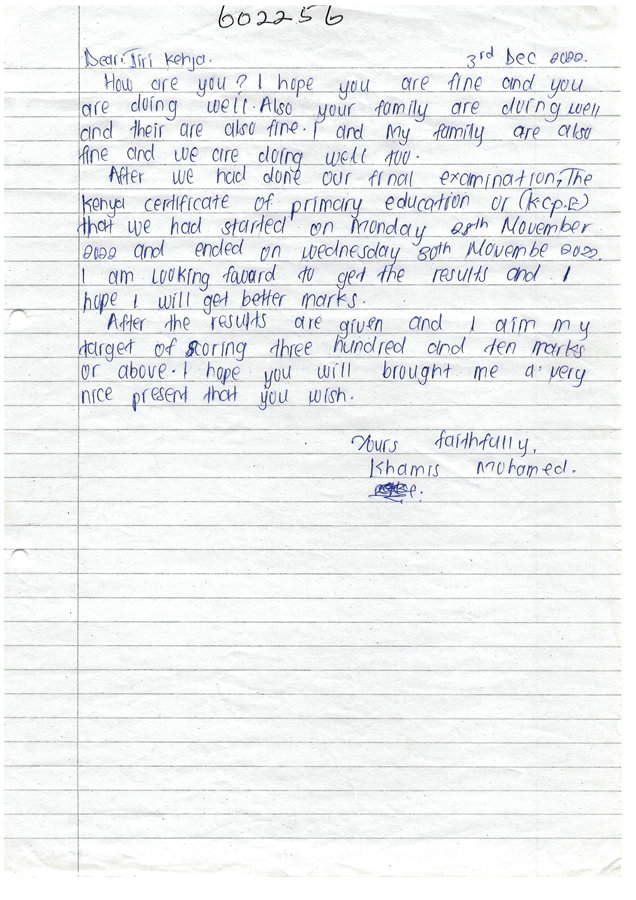 602256
Dear: Jiri Kenja. 3rd Dec 2022.
How are you? I hope you are fine and you
are doing well. Also your family are doing well
and their are also fine. I and My family are also
fine and we are doing well too.
After we had done our final examination, The
Kenya certificate of primary education or (K.C.P.E)
that we had started on Monday 28th November
2022 and ended on wednesday 30th Novembe 2022.
I am looking faward to get the results and I
hope I will get better marks.
After the results are given and I aim my
target of scoring three hundred and ten marks
or above. I hope you will brought me a very
nice present that you wish.
Yours faithfully,
Khamis Mohamed.